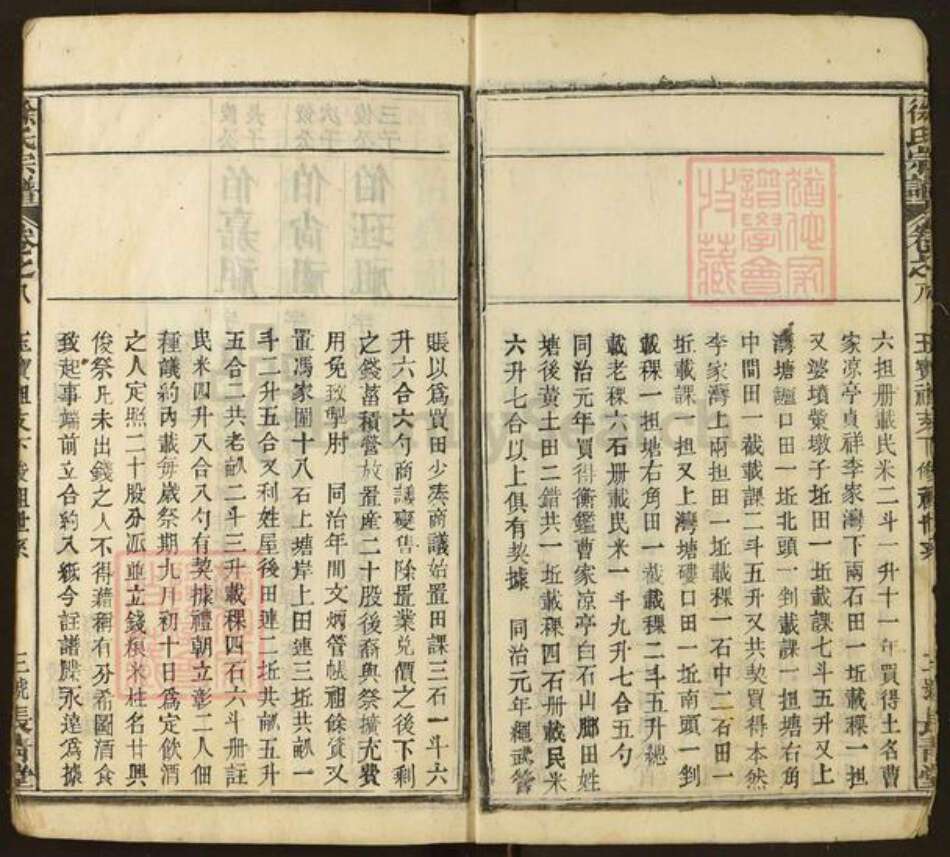 徐氏宗譜
卷之八
六担册載民米二斗一升十一年買得土名曹
家凉亭貞祥李家灣下兩石田一坵載稞一担
又婆墳策墩子坵田一坵載課七斗五升又上
灣塘邊口田一坵北頭一剅載課一担塘右角
中間田一截載課二斗五升又共契買得本然
李家灣上兩担田一坵載稞一石中二石田一
坵載課一担又上灣塘磡口田一坵南頭一剅
載稞一担塘右角田一截載稞二斗五升總
載老稞六石册載民米一斗九升七合五勺
同治元年買得衡鑑曹家凉亭白石山腳田姓
塘後黃土田二錯共一坵載稞四石册載民米
六升七合以上俱有契據 同治元年繩武管
賬以爲買田少湊商議始置田課三石一斗六
升六合六勺商議變售除置業兑價之後下剩
之錢蓄積營放置産二十股後裔與祭擴充費
用免致掣肘 同治年間文炳管帳祖餘貲又
置馮家圍十八石上塘岸上田連三坵共畝一
斗二升五合又利姓屋後田連二坵共畝五升
五合二共老畝二斗三升載稞四石六斗册註
民米四升八合八勺有契據禮朝立彰二人佃
種議約內載每歲祭期九月初十日爲定飲酒
之人定照二十股分派並立錢糧米柱名廿興
俊祭凡未出錢之人不得藉稱有分希圖酒食
致起事端前立合約入紙今註譜牒永遠爲據
徐氏宗譜
卷之八
三號長青堂